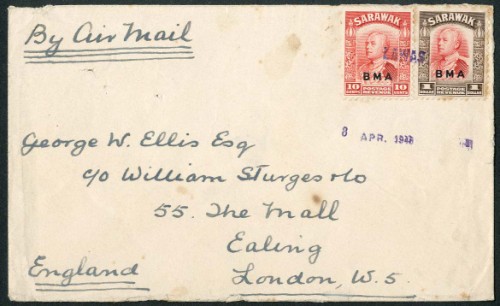 By Air Mail
SARAWAK
BMA
10 CENTS
POSTAGE REVENUE
10 CENTS
SARAWAK
BMA
1 DOLLAR
POSTAGE REVENUE
1 DOLLAR
LAWAS
8 APR. 1946
George W. Ellis Esq
c/o William Sturges & Co
55. The Mall
Ealing
London, W.5.
England